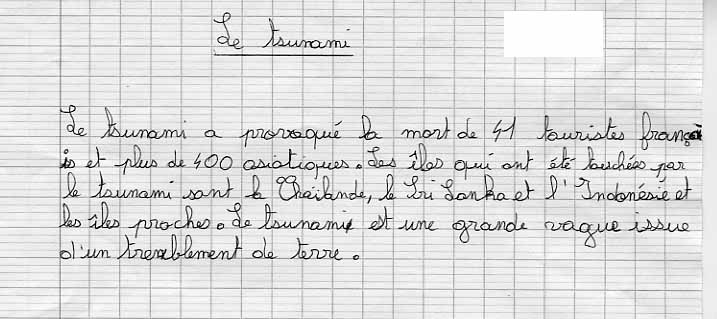 Le tsunami
Le tsunami a provoqué la mort de 41 touristes françai
is et plus de 400 asiatiques. Les îles qui ont été touchées par
le tsunami sont la Thaïlande, le Sri Lanka et l'Indonésie et
les îles proches. Le tsunami est une grande vague issue
d'un tremblement de terre.